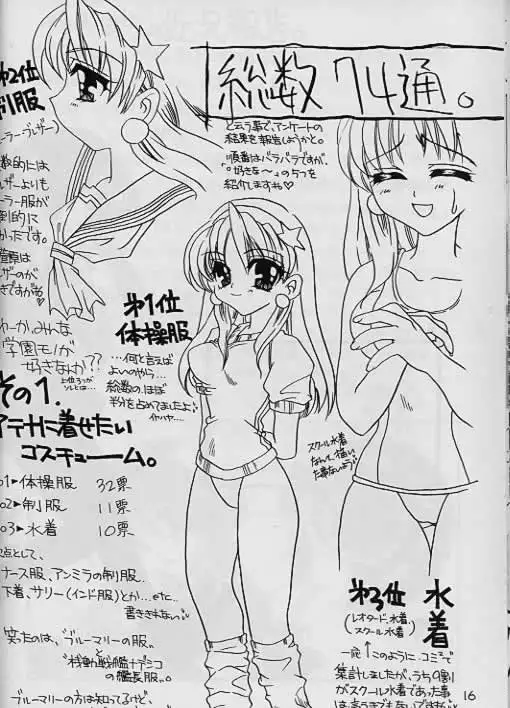 総数 74通。
と云う事で、アンケートの
結果を報告しようかと。
順番はバラバラですが、
"好きな〜"の5つを
紹介しますね♡
第2位
制服
ーラーブレザー)
数的には
ザーよりも
ーラー服が
倒的に
かったです。
ザーのが
きですがね♡
わーか、みんな
学園モノが
好きなのか??
その1.
アテナに着せたい
コスチューム。
01▶体操服 32票
02▶制服 11票
03▶水着 10票
次点として、
ナース服、アンミラの制服...
下着、サリー(インド服)とか...etc...
書ききれない
笑ったのは、"ブルーマリーの服"
と
"機動戦艦ナデシコ
の艦長服"。
ブルーマリーの方は知ってるけど、
第1位
体操服
...何と言えば
よいのやら...
総数のほぼ
半分を占めてましたよ
イヤハヤ...
スクール水着
なんて、描いた
事ないよう
第3位 水着
(レオタード、水着、
スクール水着)
一応↑このように、コミで
集計しましたが、うち9割
がスクール水着であった事
は言うまでもないですね
16